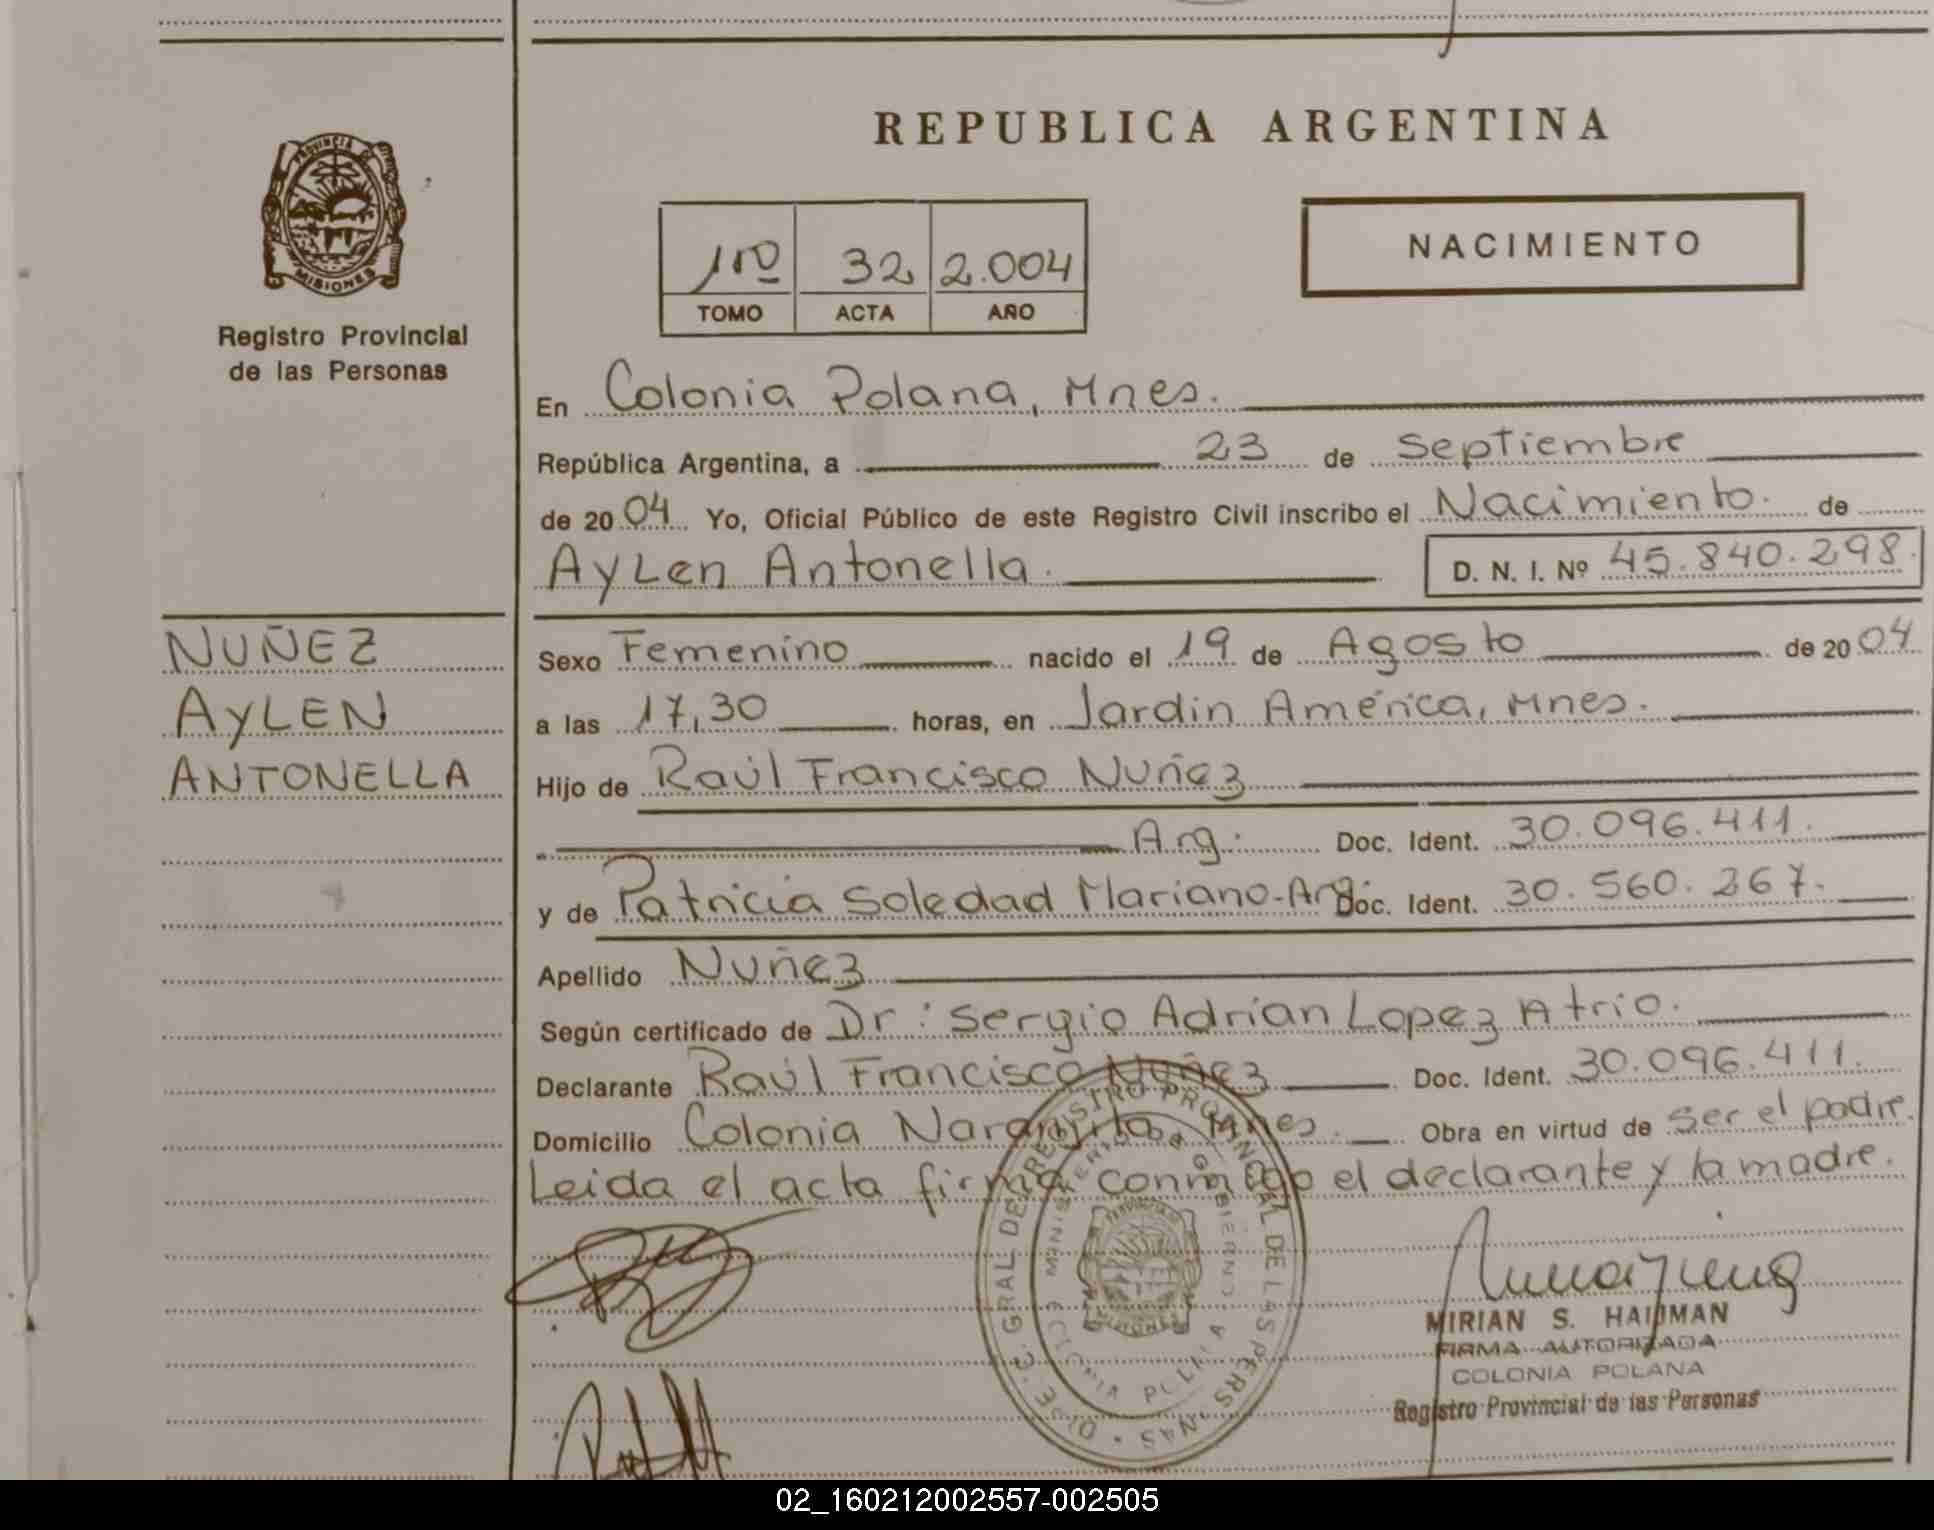 REPUBLICA ARGENTINA
PROVINCIA DE MISIONES
Registro Provincial
de las Personas
1rº 32 2.004
TOMO ACTA AÑO
NACIMIENTO
En Colonia Polana, Mnes.
República Argentina, a 23 de Septiembre
de 2004 Yo, Oficial Público de este Registro Civil inscribo el Nacimiento. de
Aylen Antonella. D. N. I. Nº 45.840.298.
NUÑEZ
AYLEN
ANTONELLA
Sexo Femenino nacido el 19 de Agosto de 2004
a las 17,30 horas, en Jardin América, Mnes.
Hijo de Raúl Francisco Nuñez
Arg. Doc. Ident. 30.096.411.
y de Patricia Soledad Mariano-Arg. Doc. Ident. 30.560.267.
Apellido Nuñez
Según certificado de Dr: Sergio Adrían Lopez Atrio.
Declarante Raúl Francisco Nuñez Doc. Ident. 30.096.411.
Domicilio Colonia Naranjito Mnes. Obra en virtud de ser el padre.
Leida el acta firma conmigo el declarante y la madre.
MIRIAN S. HAUMAN
FIRMA AUTORIZADA
COLONIA POLANA
Registro Provincial de las Personas
GRAL. DEL REGISTRO PROVINCIAL DE LAS PERSONAS
MINISTERIO DE GOBIERNO
COLONIA POLANA
PROVINCIA DE MISIONES
02_160212002557-002505